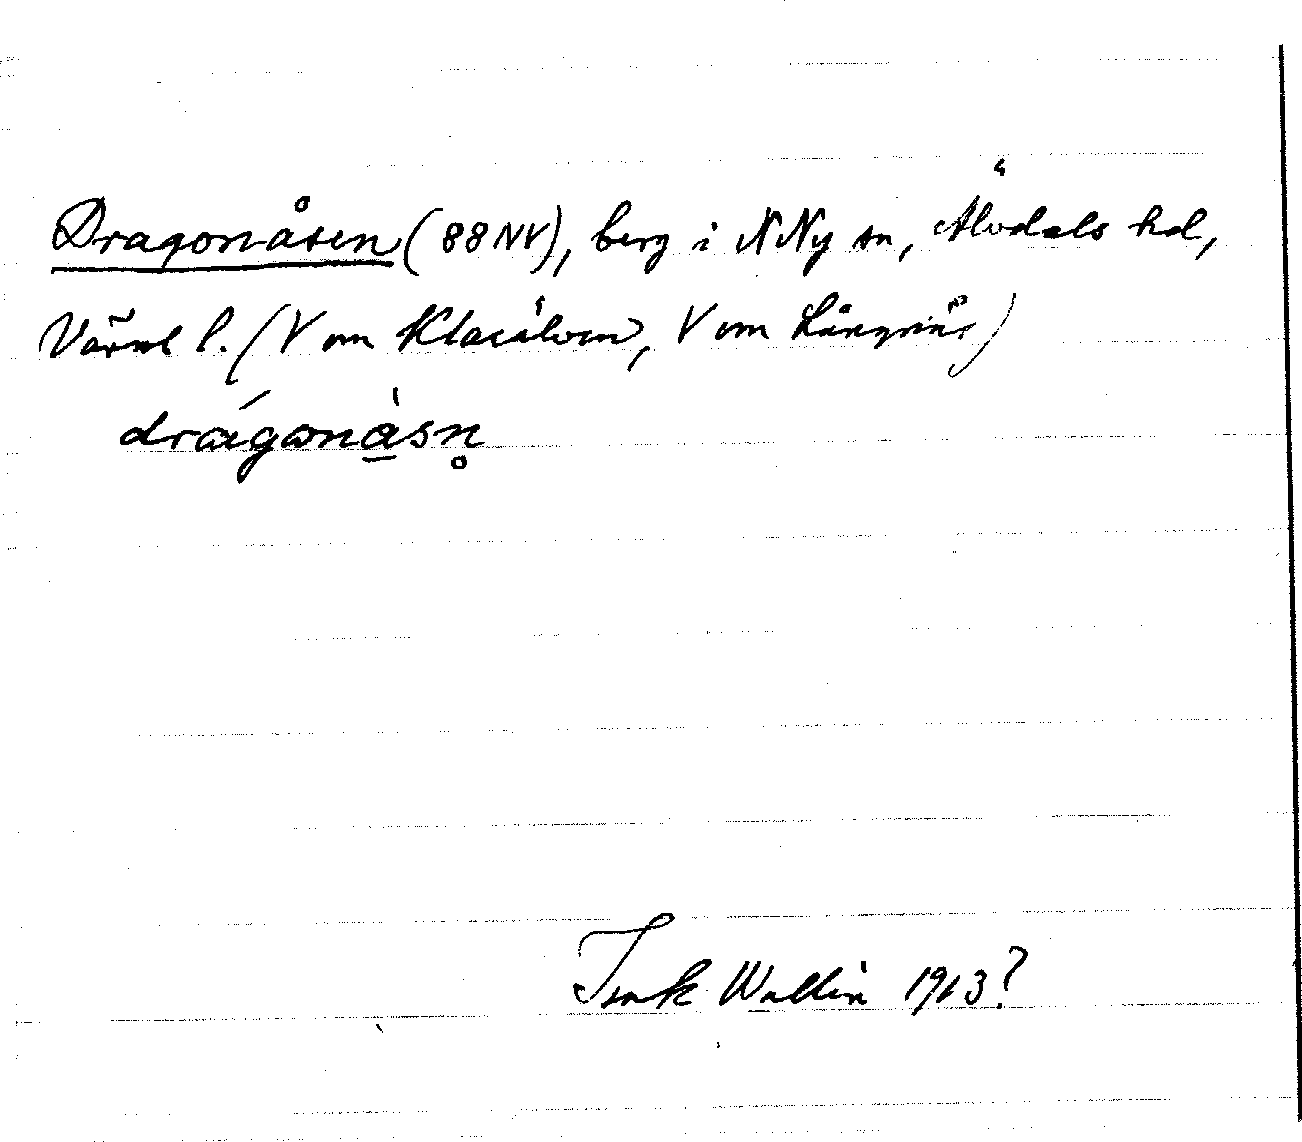 Dragonåsen (88 NV), berg i N Ny sn, Älvdals hd,
Värml l. (V om Klarälven, V om Långnäs)
drágonàsn̥
Isak Wallin 1913?